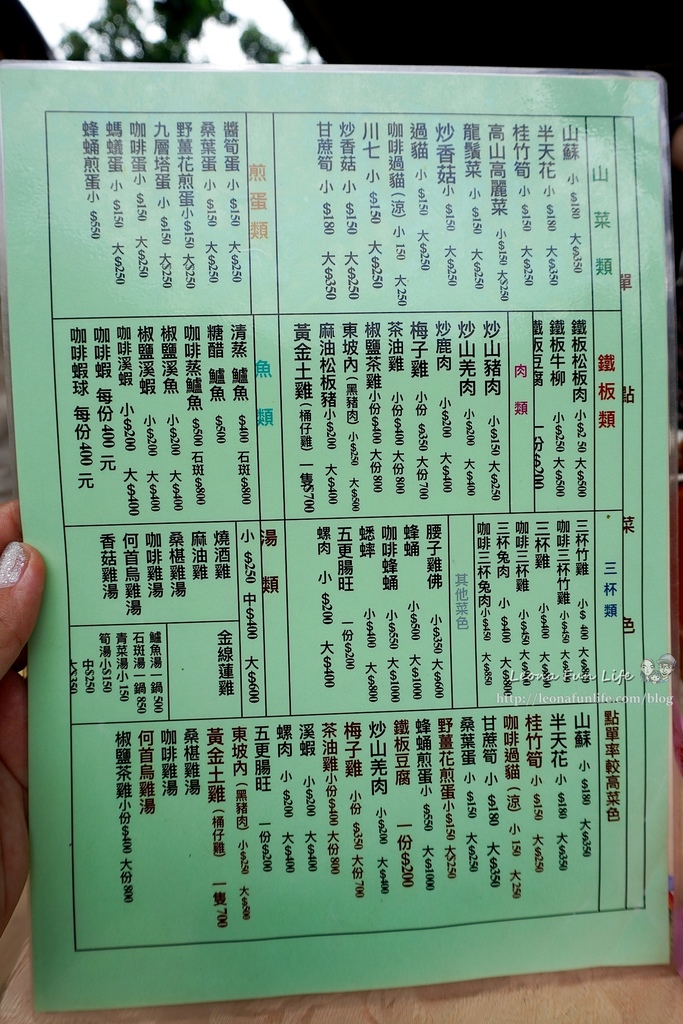 單點菜色
山菜類
山蘇 小 $180 大 $350
半天花 小 $180 大 $350
桂竹筍 小 $150 大 $250
高山高麗菜 小 $150 大 $250
龍鬚菜 小 $150 大 $250
炒香菇 小 $150 大 $250
過貓 小 $150 大 $250
咖啡過貓(涼) 小 150 大 250
川七 小 $150 大 $250
炒香菇 小 $150 大 $250
甘蔗筍 小 $180 大 $350
煎蛋類
醬筍蛋 小 $150 大 $250
桑葉蛋 小 $150 大 $250
野薑花煎蛋 小 $150 大 $250
九層塔蛋 小 $150 大 $250
咖啡蛋 小 $150 大 $250
螞蟻蛋 小 $150 大 $250
蜂蛹煎蛋 小 $550
鐵板類
鐵板松板肉 小 $250 大 $500
鐵板牛柳 小 $250 大 $500
鐵板豆腐 一份 $200
肉類
炒山豬肉 小 $150 大 $250
炒山羌肉 小 $200 大 $400
炒鹿肉 小 $200 大 $400
梅子雞 小份 $350 大份 700
茶油雞 小份 $400 大份 800
椒鹽茶雞 小份 $400 大份 800
東坡內(黑豬肉) 小 $250 大 $500
麻油松板豬 小 $200 大 $400
黃金土雞(桶仔雞) 一隻 $700
魚類
清蒸 鱸魚 $400 石斑 $800
糖醋 鱸魚 $500
咖啡蒸鱸魚 $500 石斑 $800
椒鹽溪魚 小 $200 大 $400
椒鹽溪蝦 小 $200 大 $400
咖啡溪蝦 小 $200 大 $400
咖啡蝦 每份 400 元
咖啡蝦球 每份 400 元
三杯類
三杯竹雞 小 $400
咖啡三杯竹雞 小 $450
三杯雞 小 $400
咖啡三杯雞 小 $450
三杯兔肉 小 $400 大 $800
咖啡三杯兔肉 小 $450 大 $850
其他菜色
腰子雞佛 小 $350 大 $600
蜂蛹 小 $500 大 $1000
咖啡蜂蛹 小 $550 大 $1000
蟋蟀 小 $400 大 $800
五更腸旺 一份 $200
螺肉 小 $200 大 $400
湯類
小 $250 中 $400 大 $600
燒酒雞
麻油雞
桑椹雞湯
咖啡雞湯
何首烏雞湯
香菇雞湯
金線蓮雞
鱸魚湯 一鍋 500
石斑湯 一鍋 850
青菜湯 小 150
筍湯 小 $150
中 $250
大 $350
點單率較高菜色
山蘇 小 $180 大 $350
半天花 小 $180 大 $350
桂竹筍 小 $150 大 $250
咖啡過貓(涼) 小 150 大 250
甘蔗筍 小 $180 大 $350
桑葉蛋 小 $150 大 $250
野薑花煎蛋 小 $150 大 $250
蜂蛹煎蛋 小 $550 大 $1000
鐵板豆腐 一份 $200
炒山羌肉 小 $200 大 $400
梅子雞 小份 $350 大份 700
茶油雞 小份 $400 大份 800
溪蝦 小 $200 大 $400
螺肉 小 $200 大 $400
五更腸旺 一份 $200
東坡內(黑豬肉) 小 $250 大 $500
黃金土雞(桶仔雞) 一隻 700
桑椹雞湯
咖啡雞湯
何首烏雞湯
椒鹽茶雞 小份 $400 大份 800
Leona Fun Life
http://leonafunlife.com/blog